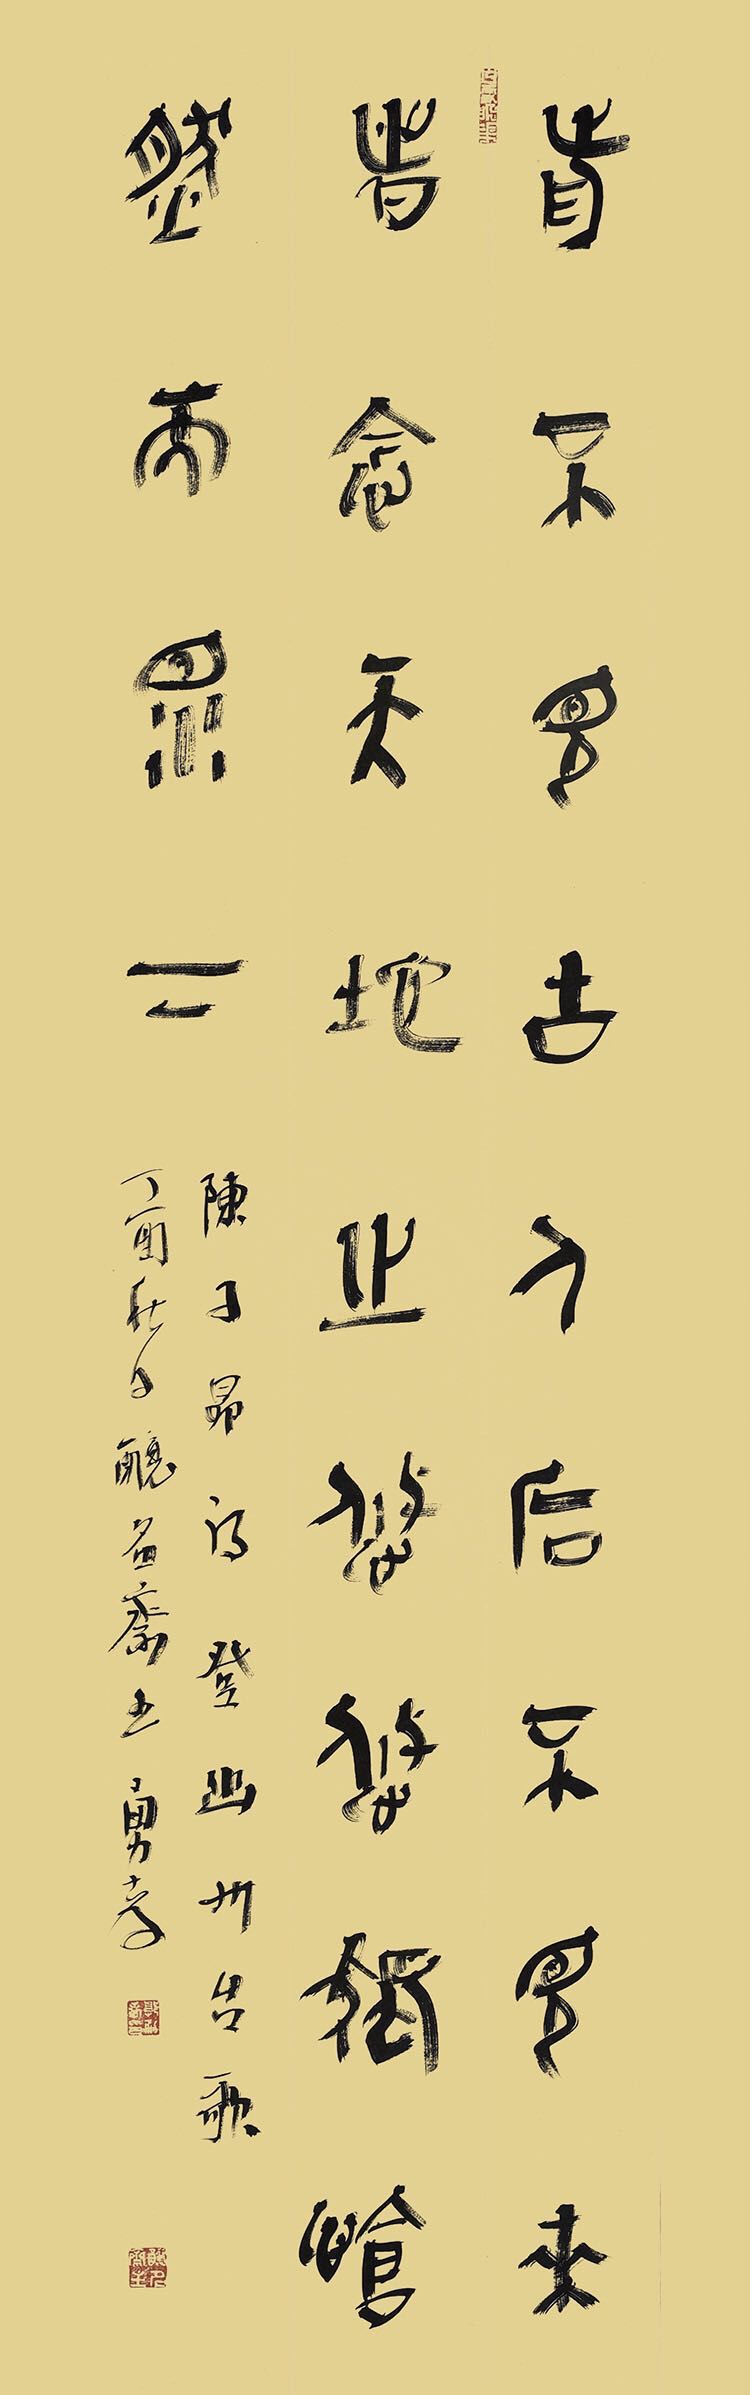 前不見古人后不見來
者念天地之悠悠獨愴
然而涕下
陳子昂詩登幽州台歌
丁酉秋日齋主勇孝